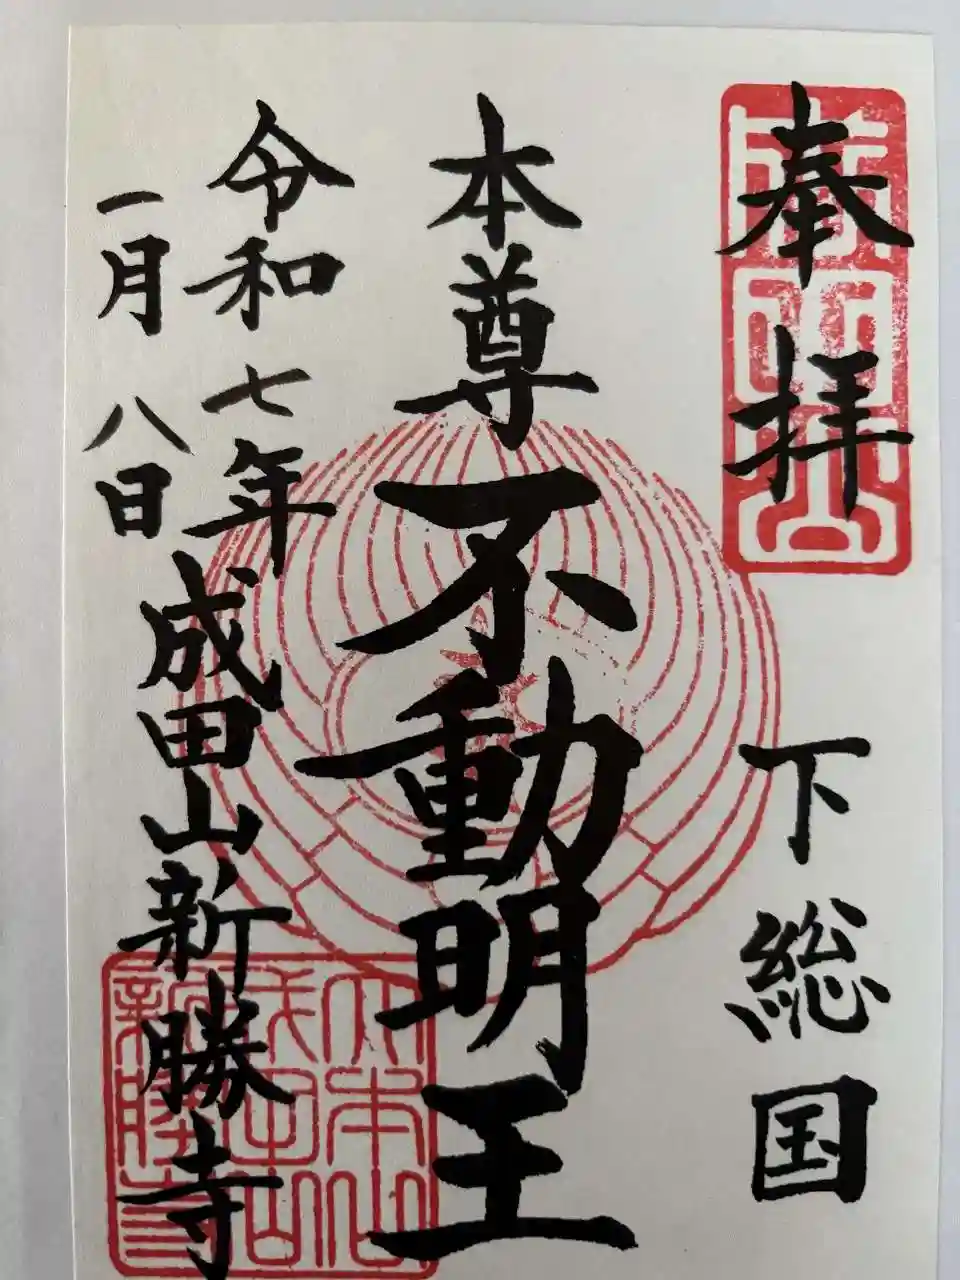 奉拝
下総国
本尊不動明王
令和七年
一月八日
成田山新勝寺
成田山
大本山成田山新勝寺